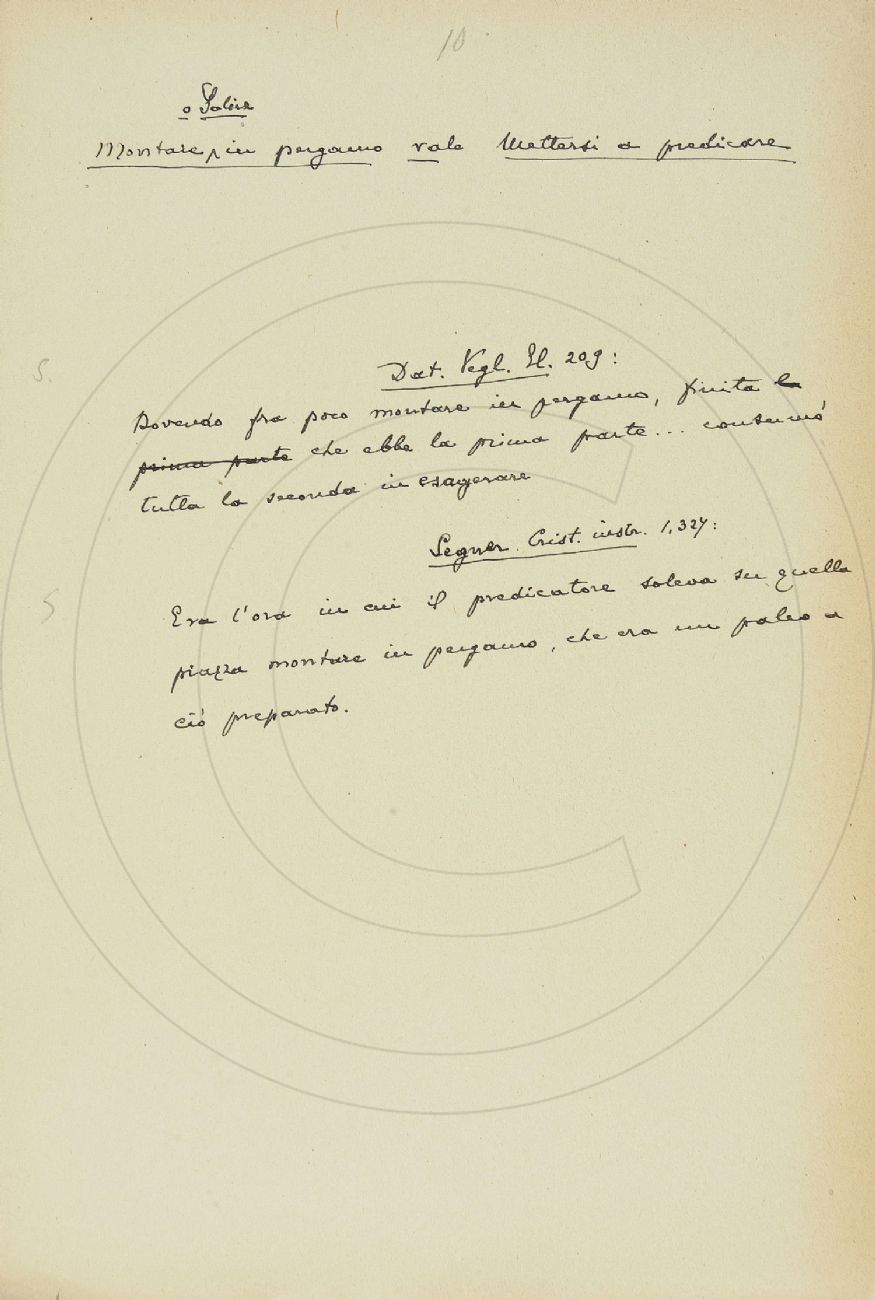 10
o Salire
Montare, in pergamo vale Mettersi a predicare
Dat. Vegl. II. 209:
S.
Dovendo fra poco montare in pergamo, finita la
prima parte che ebbe la prima parte... consumò
tutta la seconda in esagerare
Segner. Crist. instr. 1. 327:
S
Era l'ora in cui il predicatore soleva su quella
piazza montare in pergamo, che era un palco a
ciò preparato.